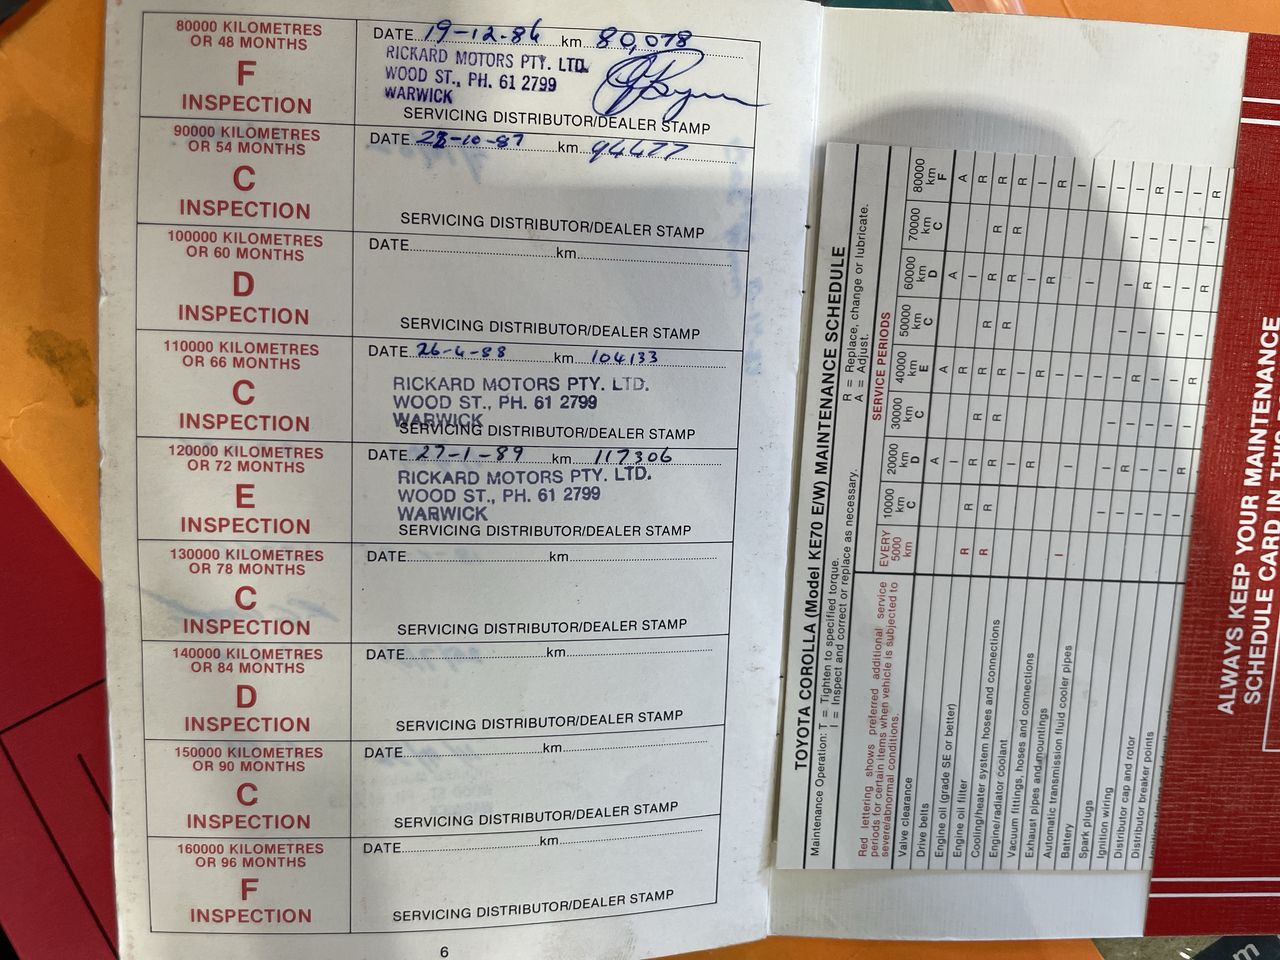 80000 KILOMETRES
OR 48 MONTHS
F
INSPECTION
DATE 19-12-86 km 80,078
RICKARD MOTORS PTY. LTD.
WOOD ST., PH. 61 2799
WARWICK
SERVICING DISTRIBUTOR/DEALER STAMP
90000 KILOMETRES
OR 54 MONTHS
C
INSPECTION
DATE 28-10-87 km 94477
SERVICING DISTRIBUTOR/DEALER STAMP
100000 KILOMETRES
OR 60 MONTHS
D
INSPECTION
DATE km
SERVICING DISTRIBUTOR/DEALER STAMP
110000 KILOMETRES
OR 66 MONTHS
C
INSPECTION
DATE 26-4-88 km 104133
RICKARD MOTORS PTY. LTD.
WOOD ST., PH. 61 2799
WARWICK
SERVICING DISTRIBUTOR/DEALER STAMP
120000 KILOMETRES
OR 72 MONTHS
E
INSPECTION
DATE 27-1-89 km 117306
RICKARD MOTORS PTY. LTD.
WOOD ST., PH. 61 2799
WARWICK
SERVICING DISTRIBUTOR/DEALER STAMP
130000 KILOMETRES
OR 78 MONTHS
C
INSPECTION
DATE km
SERVICING DISTRIBUTOR/DEALER STAMP
140000 KILOMETRES
OR 84 MONTHS
D
INSPECTION
DATE km
SERVICING DISTRIBUTOR/DEALER STAMP
150000 KILOMETRES
OR 90 MONTHS
C
INSPECTION
DATE km
SERVICING DISTRIBUTOR/DEALER STAMP
160000 KILOMETRES
OR 96 MONTHS
F
INSPECTION
DATE km
SERVICING DISTRIBUTOR/DEALER STAMP
6
TOYOTA COROLLA (Model KE70 E/W) MAINTENANCE SCHEDULE
Maintenance Operation: T = Tighten to specified torque. R = Replace, change or lubricate.
I = Inspect and correct or replace as necessary. A = Adjust.
Red lettering shows preferred additional service
periods for certain items when vehicle is subjected to
severe/abnormal conditions.
SERVICE PERIODS
EVERY 5000 km
10000 km C
20000 km D
30000 km C
40000 km E
50000 km C
60000 km D
70000 km C
80000 km F
Valve clearance
Drive belts
Engine oil (grade SE or better)
Engine oil filter
Cooling/heater system hoses and connections
Engine/radiator coolant
Vacuum fittings, hoses and connections
Exhaust pipes and mountings
Automatic transmission fluid cooler pipes
Battery
Spark plugs
Ignition wiring
Distributor cap and rotor
Distributor breaker points
ALWAYS KEEP YOUR MAINTENANCE
SCHEDULE CARD IN THIS